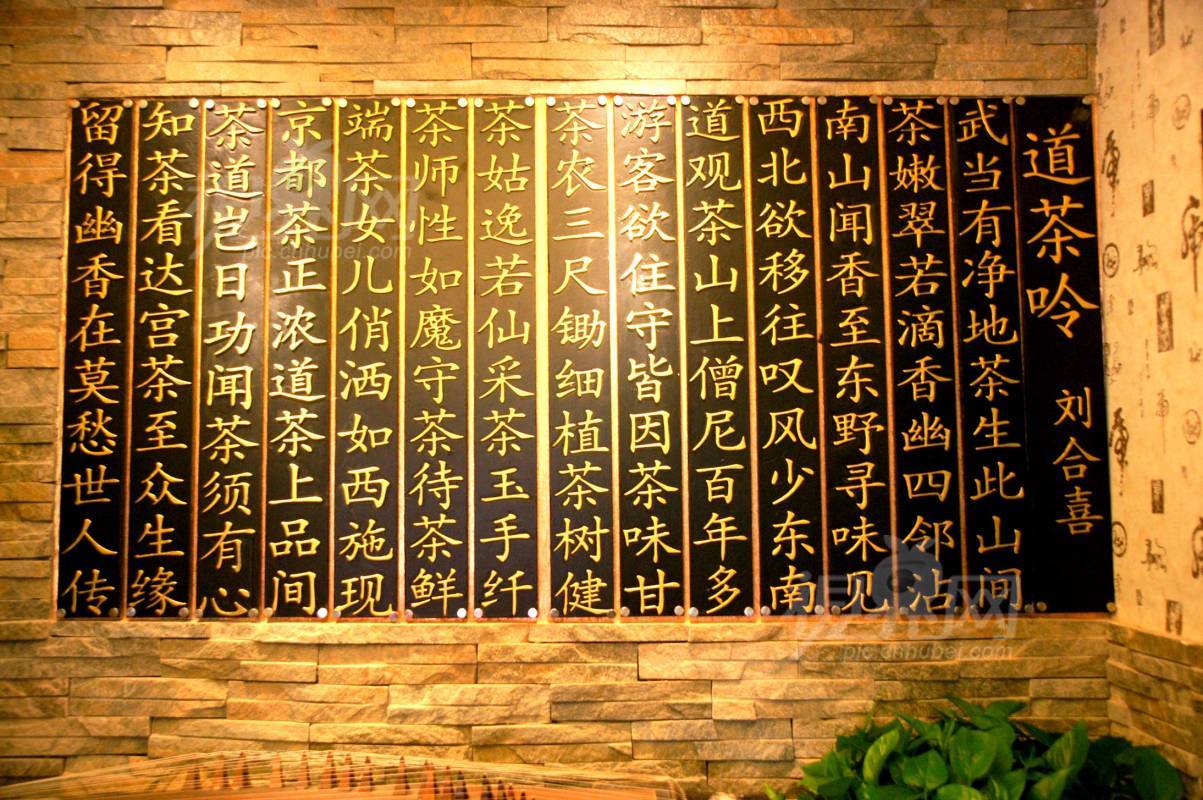 道茶吟
刘合喜
武当有净地茶生此山间
茶嫩翠若滴香幽四邻沾
南山闻香至东野寻味见
西北欲移往叹风少东南
道观茶山上僧尼百年多
游客欲住守皆因茶味甘
茶农三尺锄细植茶树健
茶姑逸若仙采茶玉手纤
茶师性如魔守茶待茶鲜
端茶女儿俏洒如西施现
京都茶正浓道茶上品间
茶道岂日功闻茶须有心
知茶看达宫茶至众生缘
留得幽香在莫愁世人传
pic.cnhubei.com
pic.cnhubei.com